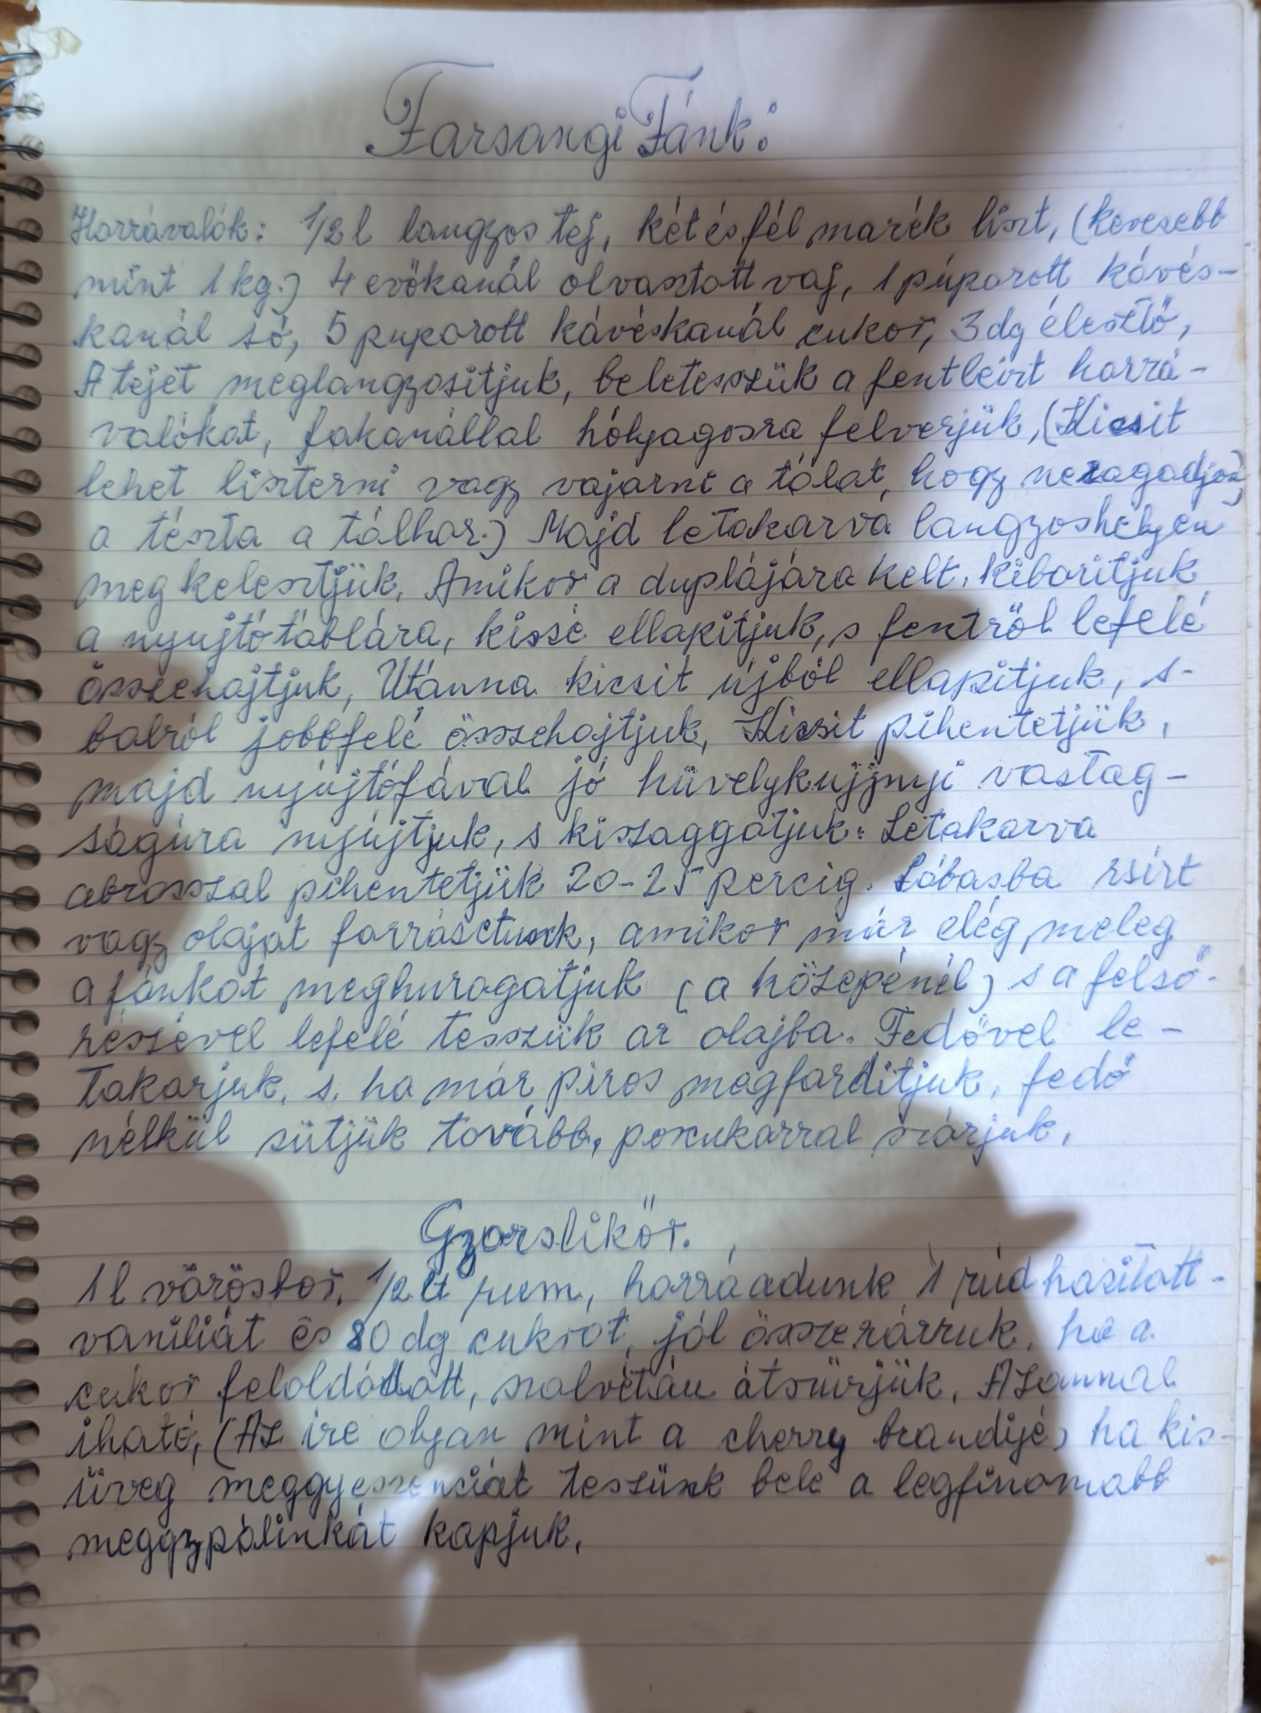 Farsangi Fánk:
Hozzávalók: 1/2 l langyos tej, két és fél marék liszt, (kevesebb
mint 1 kg.) 4 evőkanál olvasztott vaj, 1 púpozott kávés-
kanál só, 5 pupozott kávéskanál cukor, 3 dg élesztő,
A tejet meglangyosítjuk, beletesszük a fentleírt hozzá-
valókat, fakanállal hólyagosra felverjük, (Kicsit
lehet lisztezni vagy vajazni a tálat, hogy ne ragadjon
a tészta a tálhoz.) Majd letakarva langyoshelyen
megkelesztjük. Amikor a duplájára kelt, kiborítjuk
a nyujtótáblára, kissé ellapítjuk, s fentről lefelé
összehajtjuk, Utánna kicsit újból ellapítjuk, s-
balról jobbfelé összehajtjuk, Kicsit pihentetjük,
majd nyújtófával jó hüvelykujjnyi vastag-
ságúra nyújtjuk, s kiszaggatjuk. Letakarva
abrosszal pihentetjük 20-25 percig. Lábasba zsírt
vagy olajat forrásítunk, amikor már elég meleg
a fánkot meghuzogatjuk (a közepénél) s a felső-
részével lefelé tesszük az olajba. Fedővel le-
takarjuk, s. ha már piros megfordítjuk, fedő
nélkül sütjük tovább, porcukorral szórjuk.
Gyorslikőr.
1 l vörösbor, 1/2 lt rum, hozzáadunk 1 rúd hasított-
vaniliát és 80 dg cukrot, jól összerázzuk, ha a
cukor feloldódott, szalvétán átszürjük, Azonnal
iható, (Az íze olyan mint a cherry brandyé) ha kis-
üveg meggyeszenciát teszünk bele a legfinomabb
meggypálinkát kapjuk.